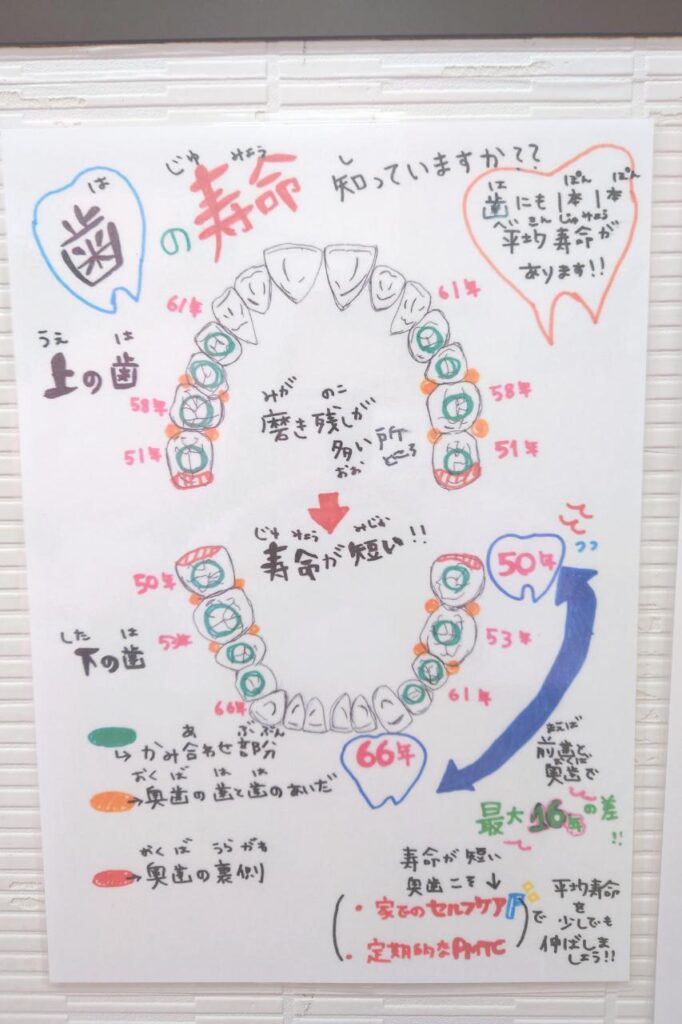 歯の寿命 知っていますか??
は じゅ みょう し
歯にも1本1本
は ぽん ぽん
平均寿命が
へいきんじゅみょう
あります!!
61年 61年
うえ は
上の歯
58年 58年
51年 51年
みが のこ
磨き残しが
多い所
おお ところ
じゅ みょう みじか
寿命が短い!!
50年 50年
した は
下の歯
53年 53年
66年 61年
66年
あ ぶぶん
かみ合わせ部分
おく ば は は
奥歯の歯と歯のあいだ
おく ば うら がわ
奥歯の裏側
まえば
前歯と
おくば
奥歯で
最大16年の差!!
寿命が短い
奥歯こそ↓
・家でのセルフケア
・定期的なPMTC
で
平均寿命
を
少しでも
伸ばしま
しょう!!